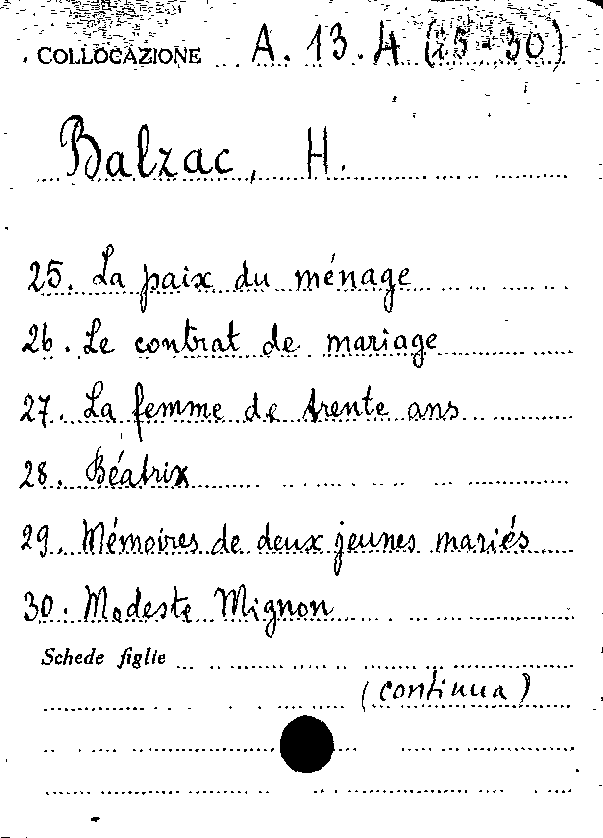 COLLOCAZIONE A. 13. A (25-30)
Balzac, H.
25. La paix du ménage
26. Le contrat de mariage
27. La femme de trente ans
28. Béatrix
29. Mémoires de deux jeunes mariés
30. Modeste Mignon
Schede figlie
(continua)